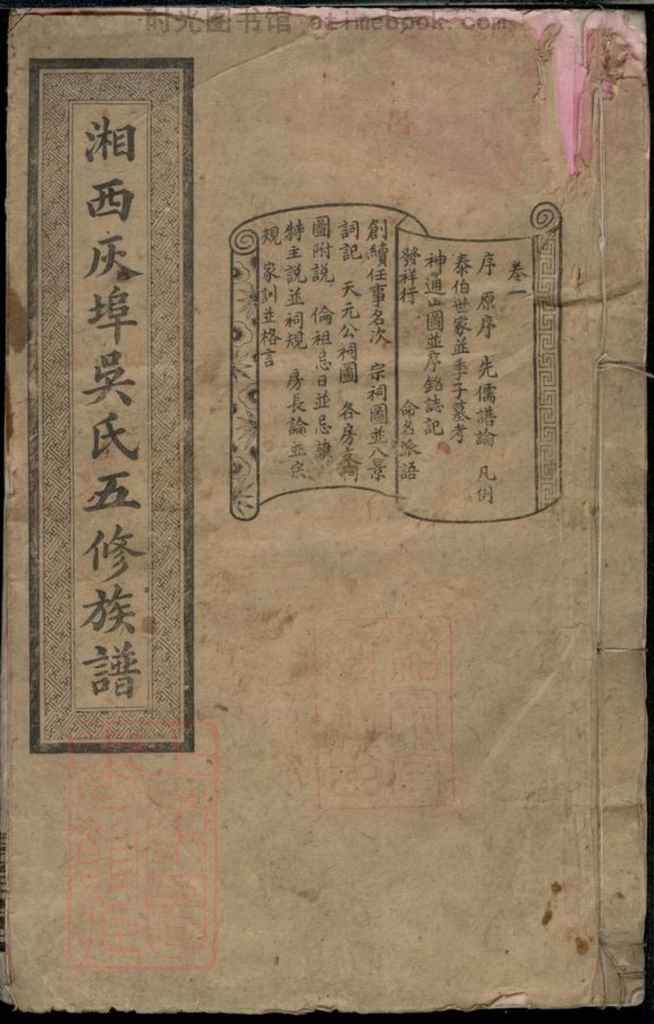 时光图书馆 otimebook.com
湘西仄埠吳氏五修族譜
卷一
序 原序 先儒譜論 凡例
泰伯世家並季子墓考
神道山圖並序銘誌記
發祥行 命名派語
創續任事名次 宗祠圖並八景
詞記 天元公祠圖 各房支祠
圖附說 倫祖忌日並忌議
特主說並祠規 房長論並宗
規 家訓並格言